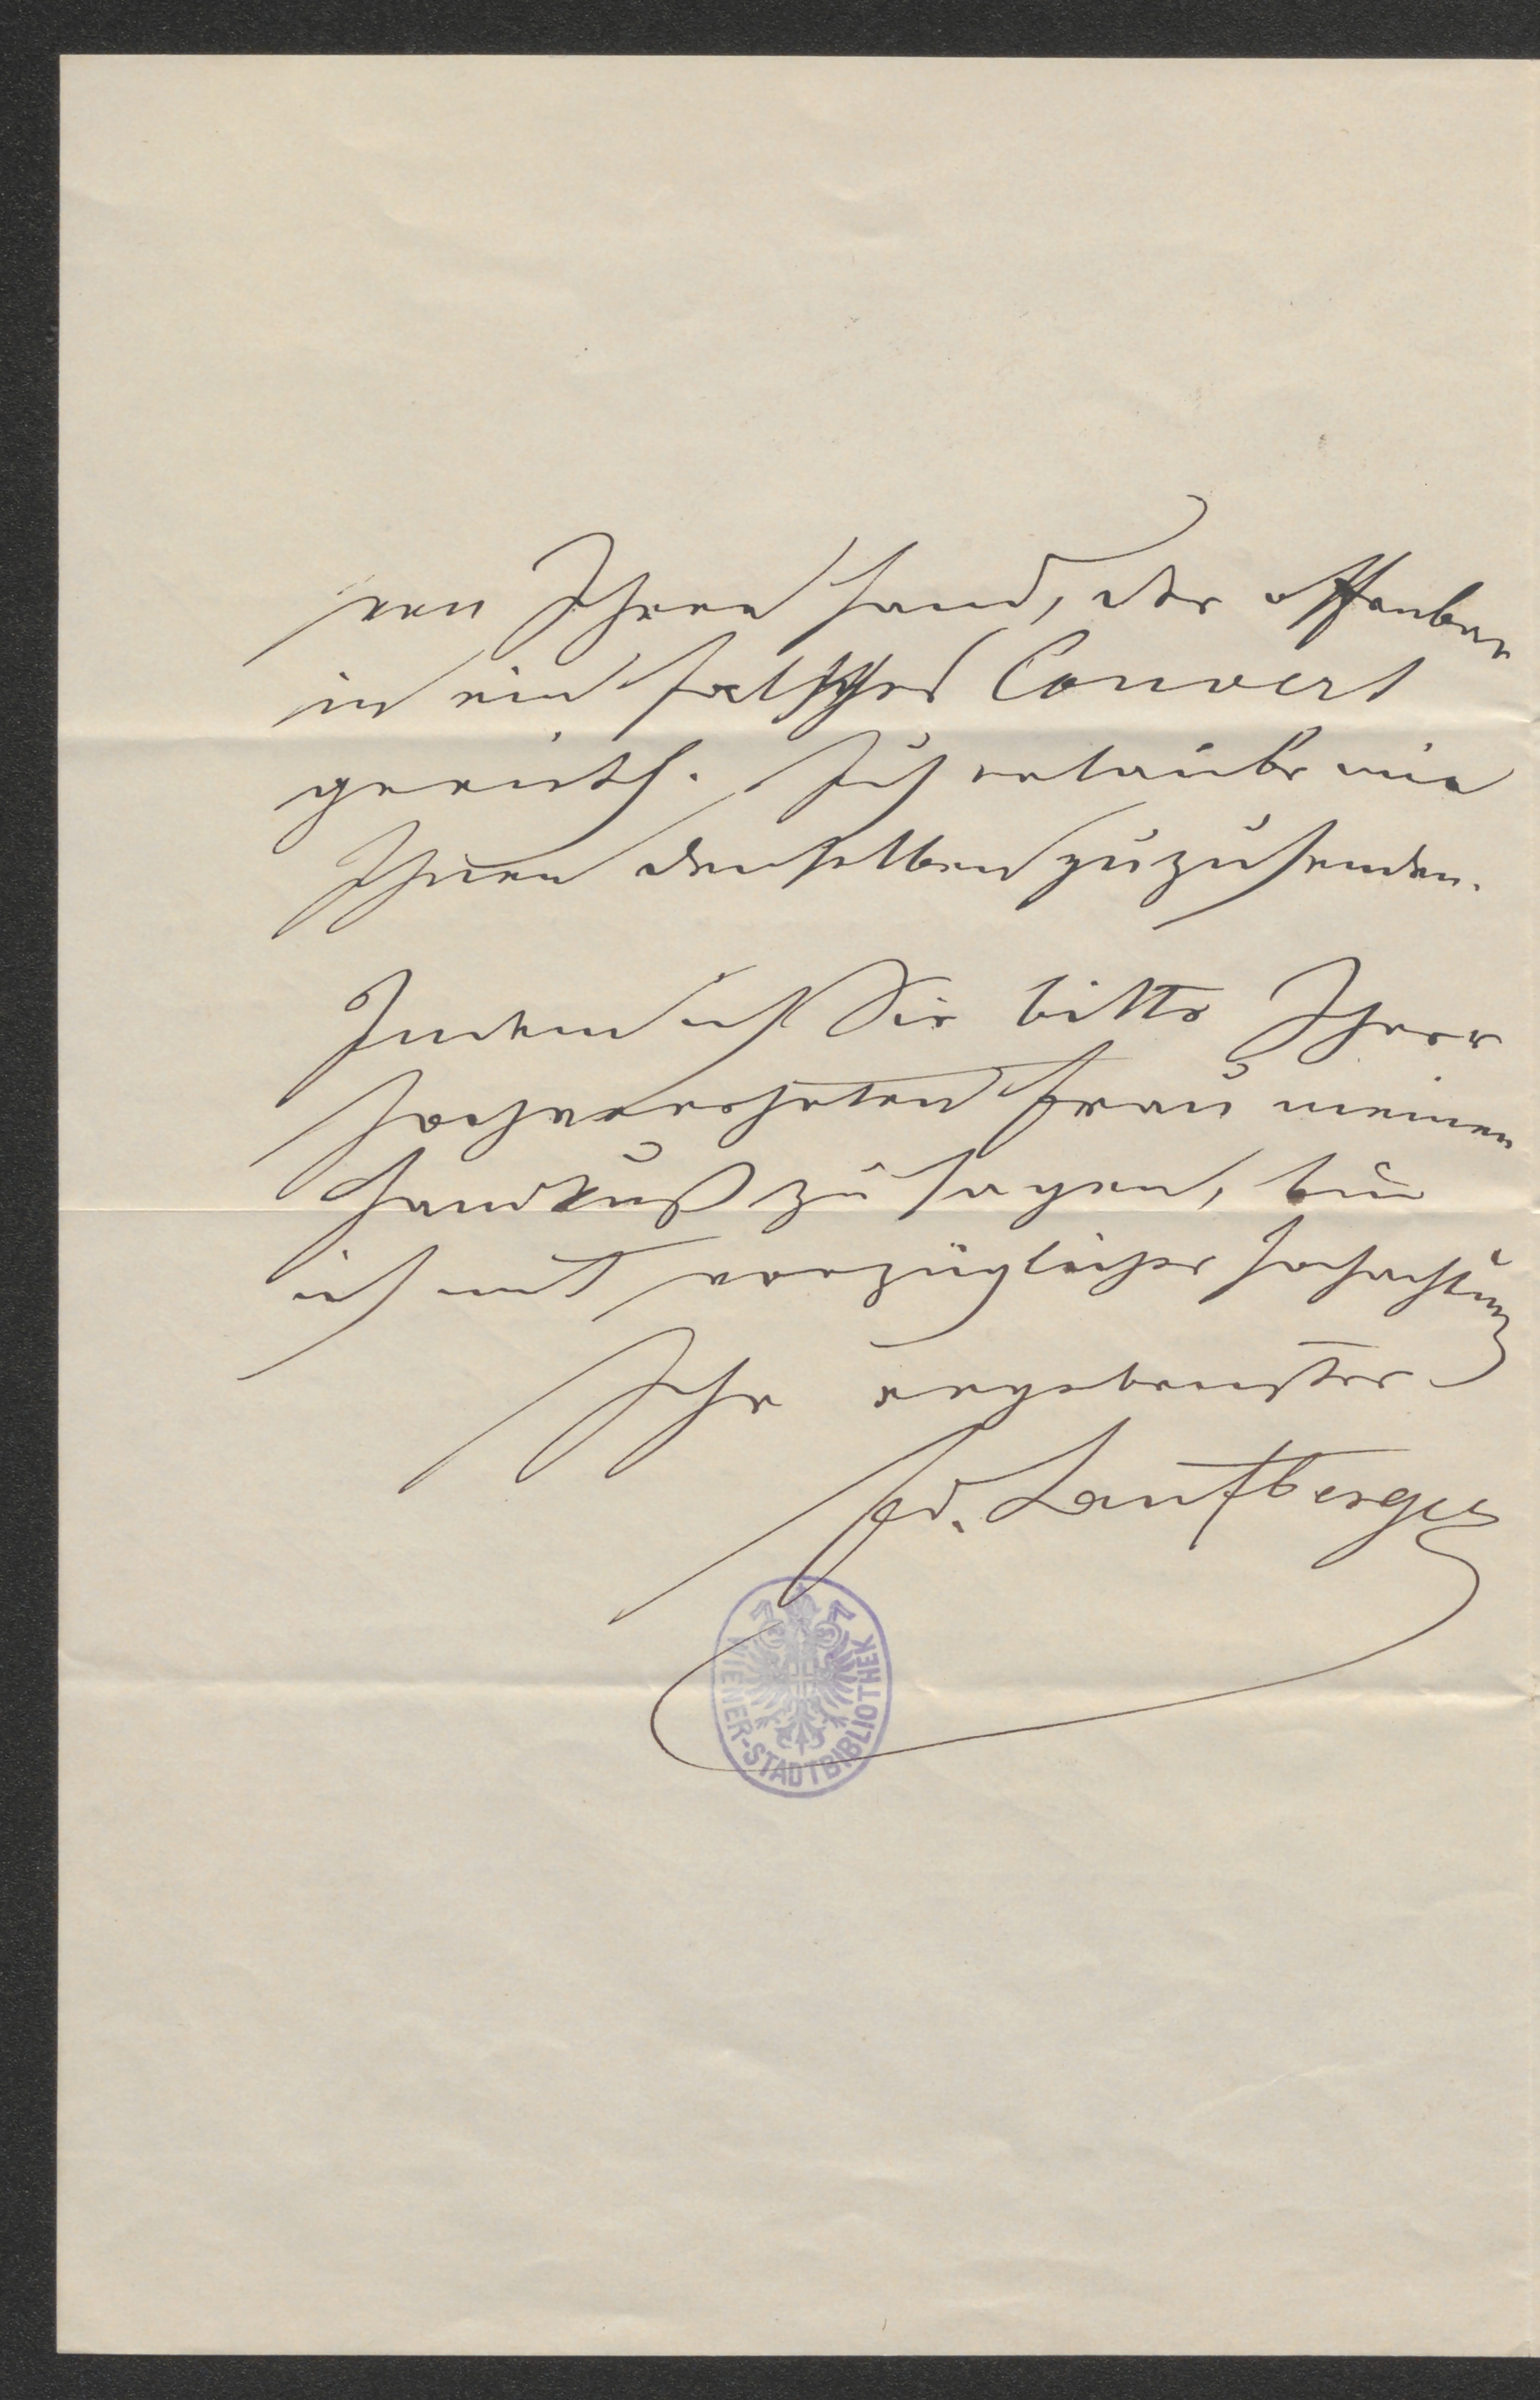 von Ihrer Hand, der offenbar
in ein falsches Couvert
gerieth. Ich erlaube mir
Ihnen denselben zuzusenden.
Indem ich Sie bitte Ihrer
hochverehrten Frau meinen
Handkuß zu sagen, bin
ich mit vorzüglicher Hochachtung
Ihr ergebenster
Fd. Laufberger
WIENER-STADTBIBLIOTHEK